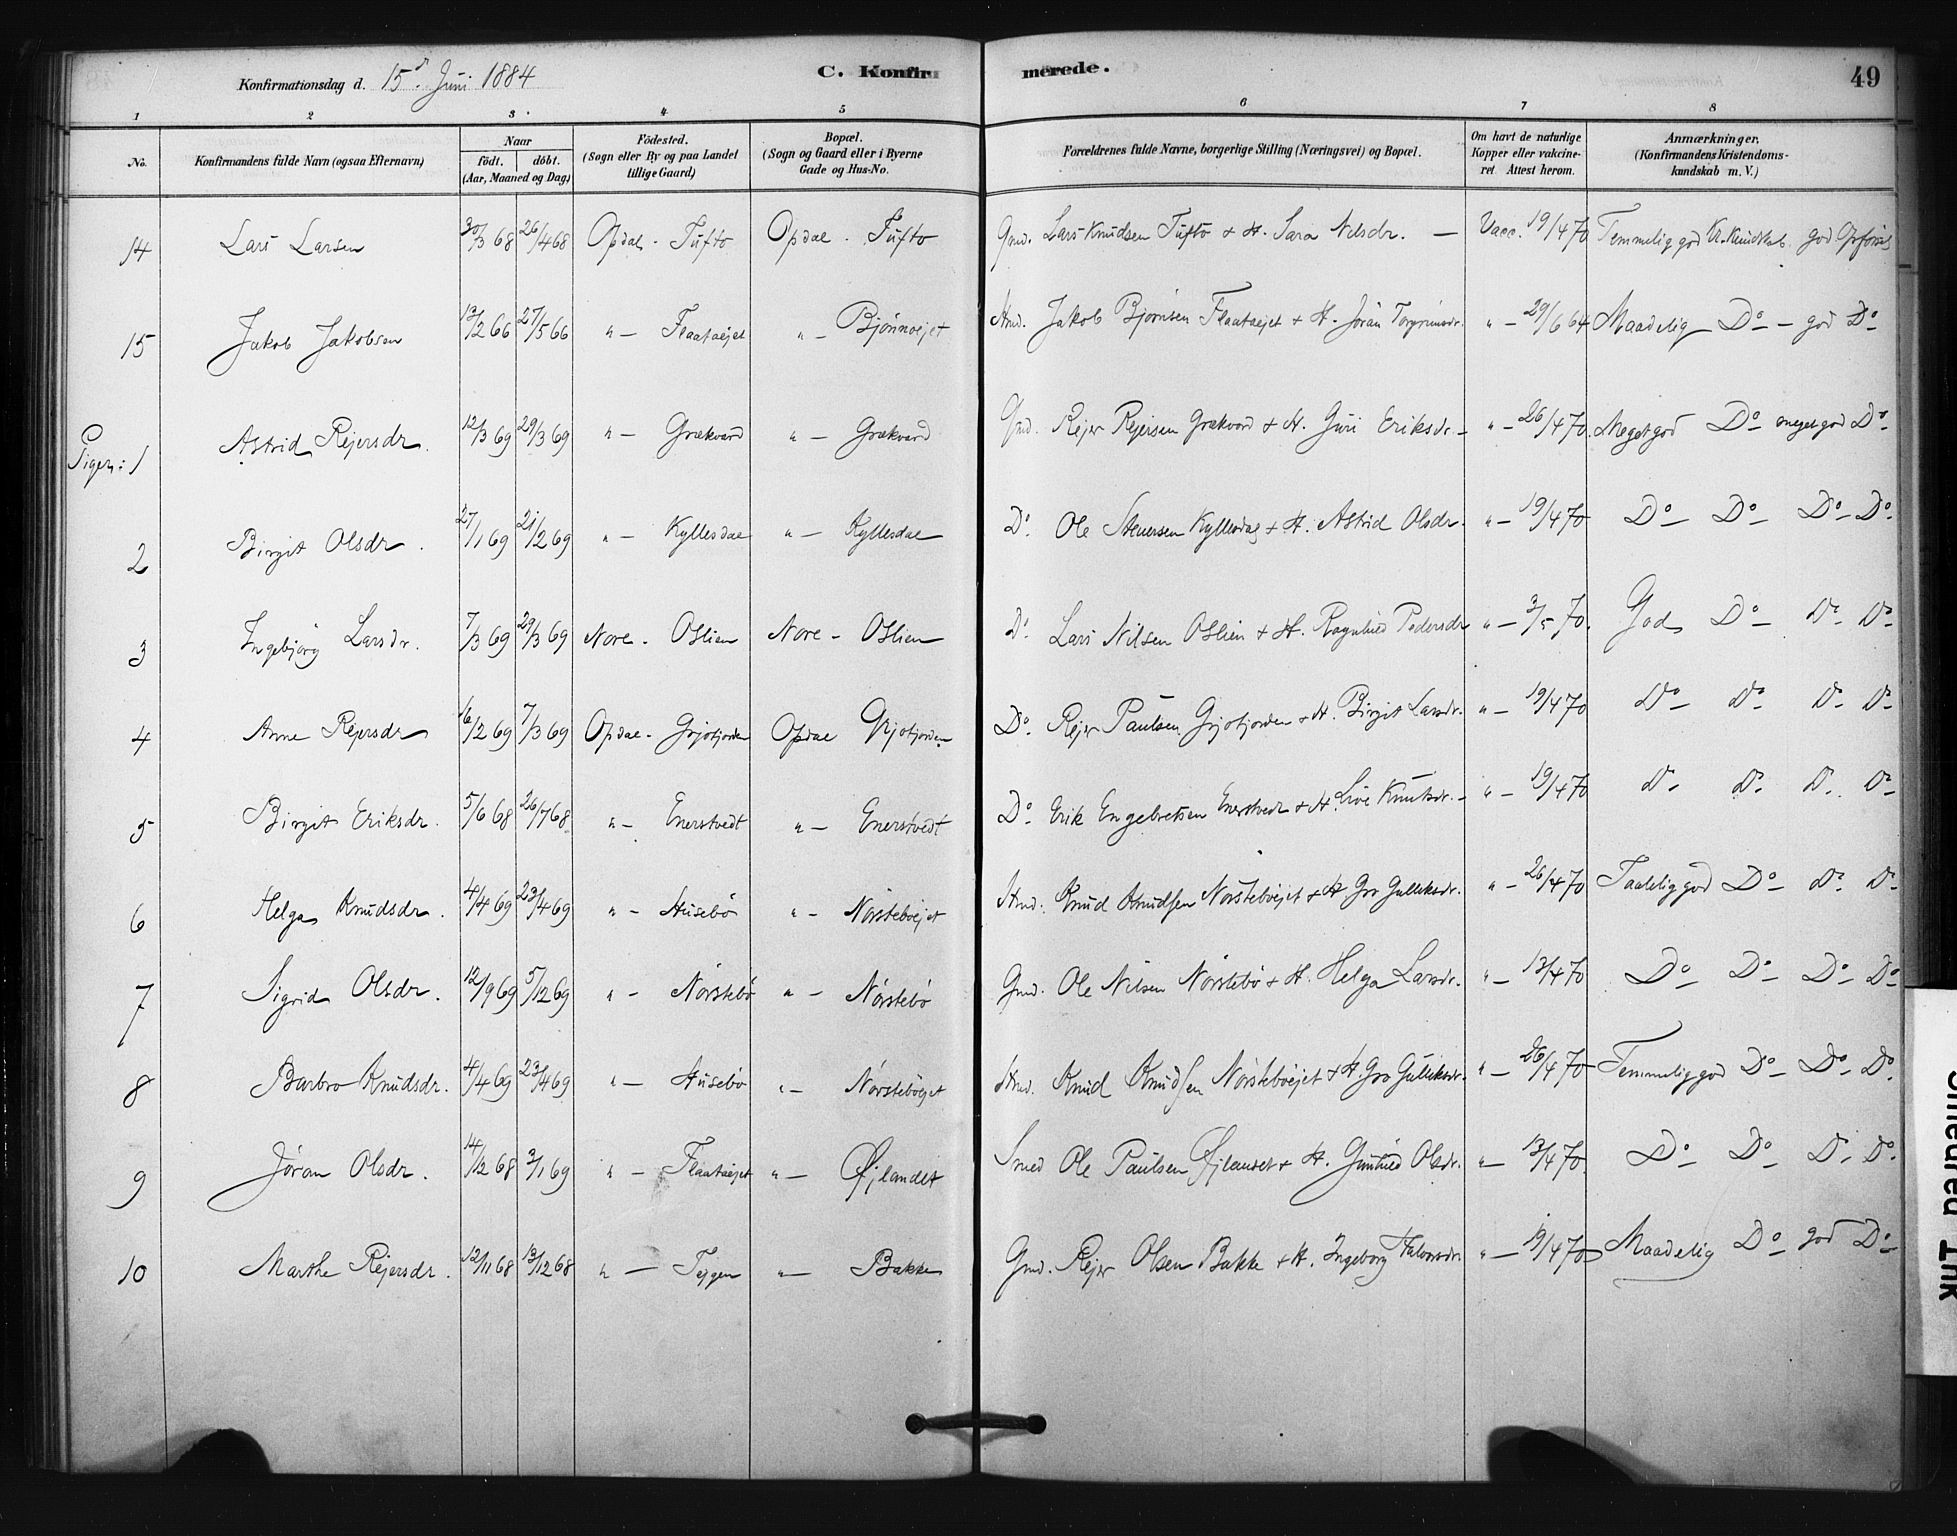 Konfirmationsdag d. 15de Juni 1884 C. Konfirmerede. 49
1 2 3 4 5 6 7 8
No. Konfirmandens fulde Navn (ogsaa Efternavn) Naar födt. döbt. (Aar, Maaned og Dag) Födested. (Sogn eller By og paa Landet tillige Gaard) Bopæl. (Sogn og Gaard eller i Byerne Gade og Hus-No. Forældrenes fulde Navne, borgerlige Stilling (Næringsvei) og Bopæl. Om havt de naturlige Kopper eller vakcineret Attest herom. Anmærkninger. (Konfirmandens Kristendomskundskab m. V.)
14 Lars Larsen 30/3 68 26/4 68 Opdal - Tufto Opdal - Tufto Gmd. Lars Knudsen Tufto + H. Sara Nilsdr. — Vacc. 19/4 70 Temmelig god Kr. Kundskab god Opførsel
15 Jakob Jakobsen 13/2 66 27/5 66 " — Flaataejet " — Bjönnoejet Hmd. Jakob Bjørnsen Flaataejet + H. Jöran Torgrimsdr. " — 29/6 64 Maadelig Do — god Do
Piger: 1 Astrid Rejersdr. 12/3 69 29/3 69 " — Grækvard " — Grækvard Gmd. Rejer Rejersen Grækvard + H. Guri Eriksdr. — " — 26/4 70 Meget god Do meget god Do
2 Birgit Olsdr. 27/1 69 21/2 69 " — Kyllesdal " — Kyllesdal Do Ole Steversen Kyllesdal + H. Astrid Olsdr. " — 19/4 70 Do Do Do Do
3 Ingebjörg Larsdr. 7/3 69 29/3 69 Nore - Oslien Nore - Oslien Do Lars Nilsen Oslien + H. Ragnhild Pedersdr " — 3/5 70. God Do Do Do
4 Anne Rejersdr 16/2 69 7/3 69 Opdal - Grjotjorden Opdal Grjotjorden Do Rejer Paulsen Grjotjorden + H. Birgit Larsdr. " — 19/4 70 Do Do Do Do
5 Birgit Eriksdr. 5/6 68 26/7 68 " — Enerstvedt " — Enerstvedt Do Erik Engebretsen Enerstvedt + H. Live Knutsdr. — " — 19/4 70 Do Do Do Do
6 Helga Knudsdr. 4/4 69 23/4 69 " — Husebö " — Nörstebøejet Hmd. Knud Knudsen Nörstebøejet + H. Gro Gulleksdr. " — 26/4 70 Taalelig god Do Do Do
7 Sigrid Olsdr. 12/9 69 5/12 69 " — Nörstebö " — Nörstebö Gmd. Ole Nilsen Nörstebö + H. Helga Larsdr. " — 13/4 70 Do Do Do Do
8 Barbro Knudsdr. 4/4 69 23/4 69 " — Husebö " — Nörstebøejet Hmd. Knud Knudsen Nörstebøejet + H. Gro Gulleksdr. " — 26/4 70 Temmelig god Do Do Do
9 Jøran Olsdr. 14/12 68 3/1 69 " — Flaataejet " — Øjlandet Smed Ole Paulsen Øjlandet + H. Gunhild Olsdr. " — 13/4 70. Do Do Do Do
10 Marthe Rejersdr. 12/11 68 13/12 68 " — Tejgen " — Bakke Gmd. Rejer Olsen Bakke + H. Ingeborg Halvorsdr. " — 19/4 70 Maadelig Do god Do
Smeared Ink